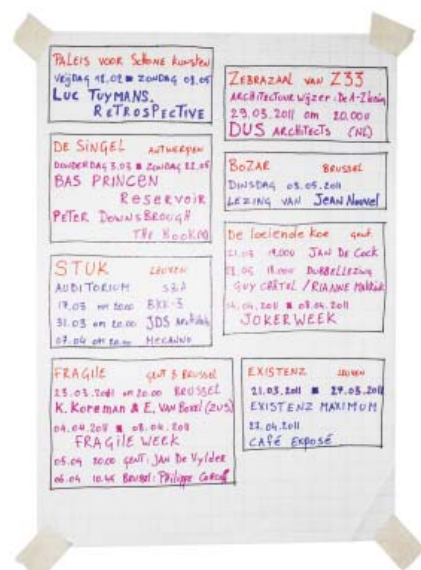 PALEIS VOOR SCHONE KUNSTEN
VRIJDAG 18.02 ZONDAG 08.05
LUC TUYMANS.
RETROSPECTIVE
DE SINGEL ANTWERPEN
DONDERDAG 3.03 ZONDAG 22.05
BAS PRINCEN
Reservoir
PETER DOWNSBROUGH
THE
STUK LEUVEN
AUDITORIUM
17.03 om 20.00 BKK-3
31.03 om 20.00 JDS
07.04 om 20.00 MECANOO
FRAGILE GENT & BRUSSEL
23.03.2011 om 20.00 BRUSSEL
K. Koreman & E. Van Boxel (ZUS)
04.04.2011 08.04.2011
FRAGILE WEEK
05.04 20.00 GENT: JAN De Vylder
06.04 Brussel: Philippe
ZEBRAZAAL VAN Z33
ARCHITECTUUR WIJZER: De A-Z
29.03.2011 om 20.00u
DUS ARCHITECTS (NL)
BOZAR BRUSSEL
DINSDAG 03.05.2011
LEZING VAN Jean Nouvel
De loeiende Koe gent
21.03 19.00u JAN De Cock
19.00u DUBBELLEZING
GUY CHÂTEL / RIANNE
04.04.2011 08.04.2011
JOKERWEEK
EXISTENZ LEUVEN
21.03.2011 27.03.2011
EXISTENZ MAXIMUM
27.04.2011
CAFÉ EXPOSÉ